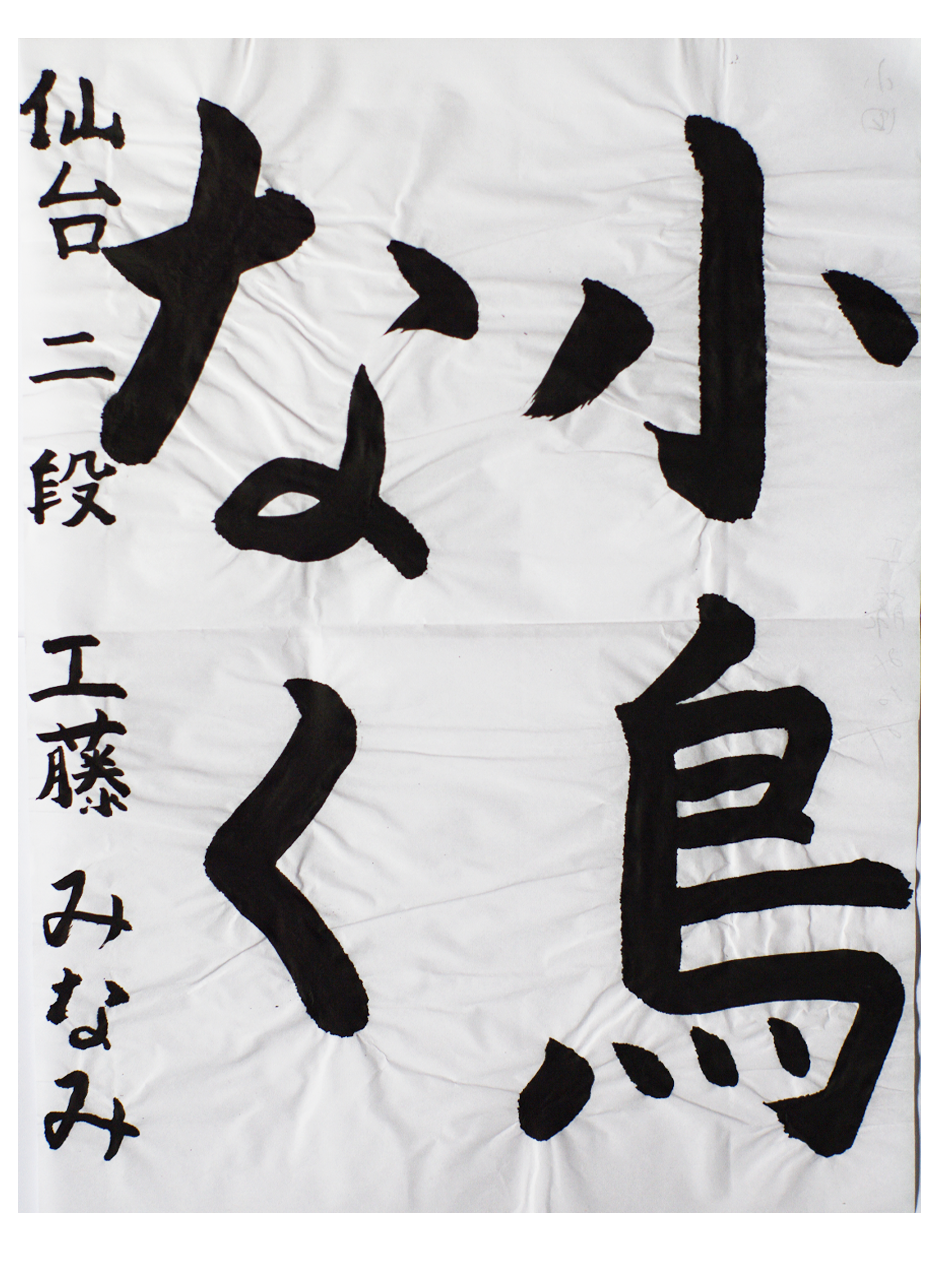 小鳥
なく
仙台 二段 工藤 みなみ